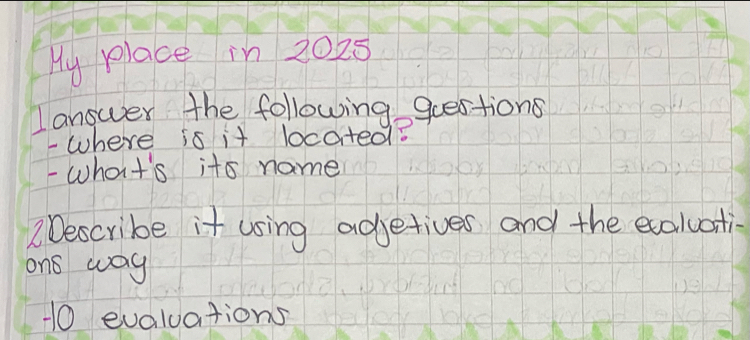 My place in 2025
1 answer the following questions
- where is it located?
- what's its name
2 Describe it using adjetives and the evaluati-
ons way
-10 evaluations